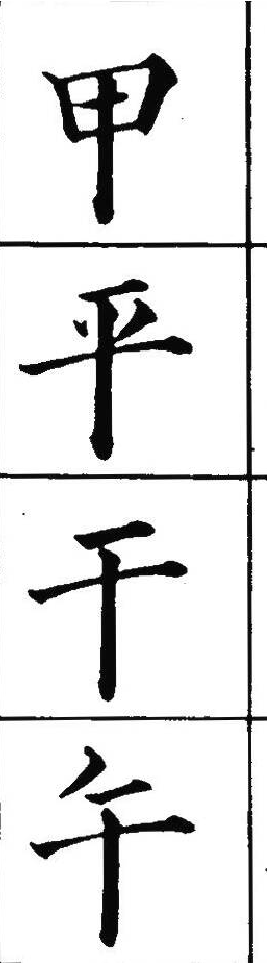 甲
平
干
午